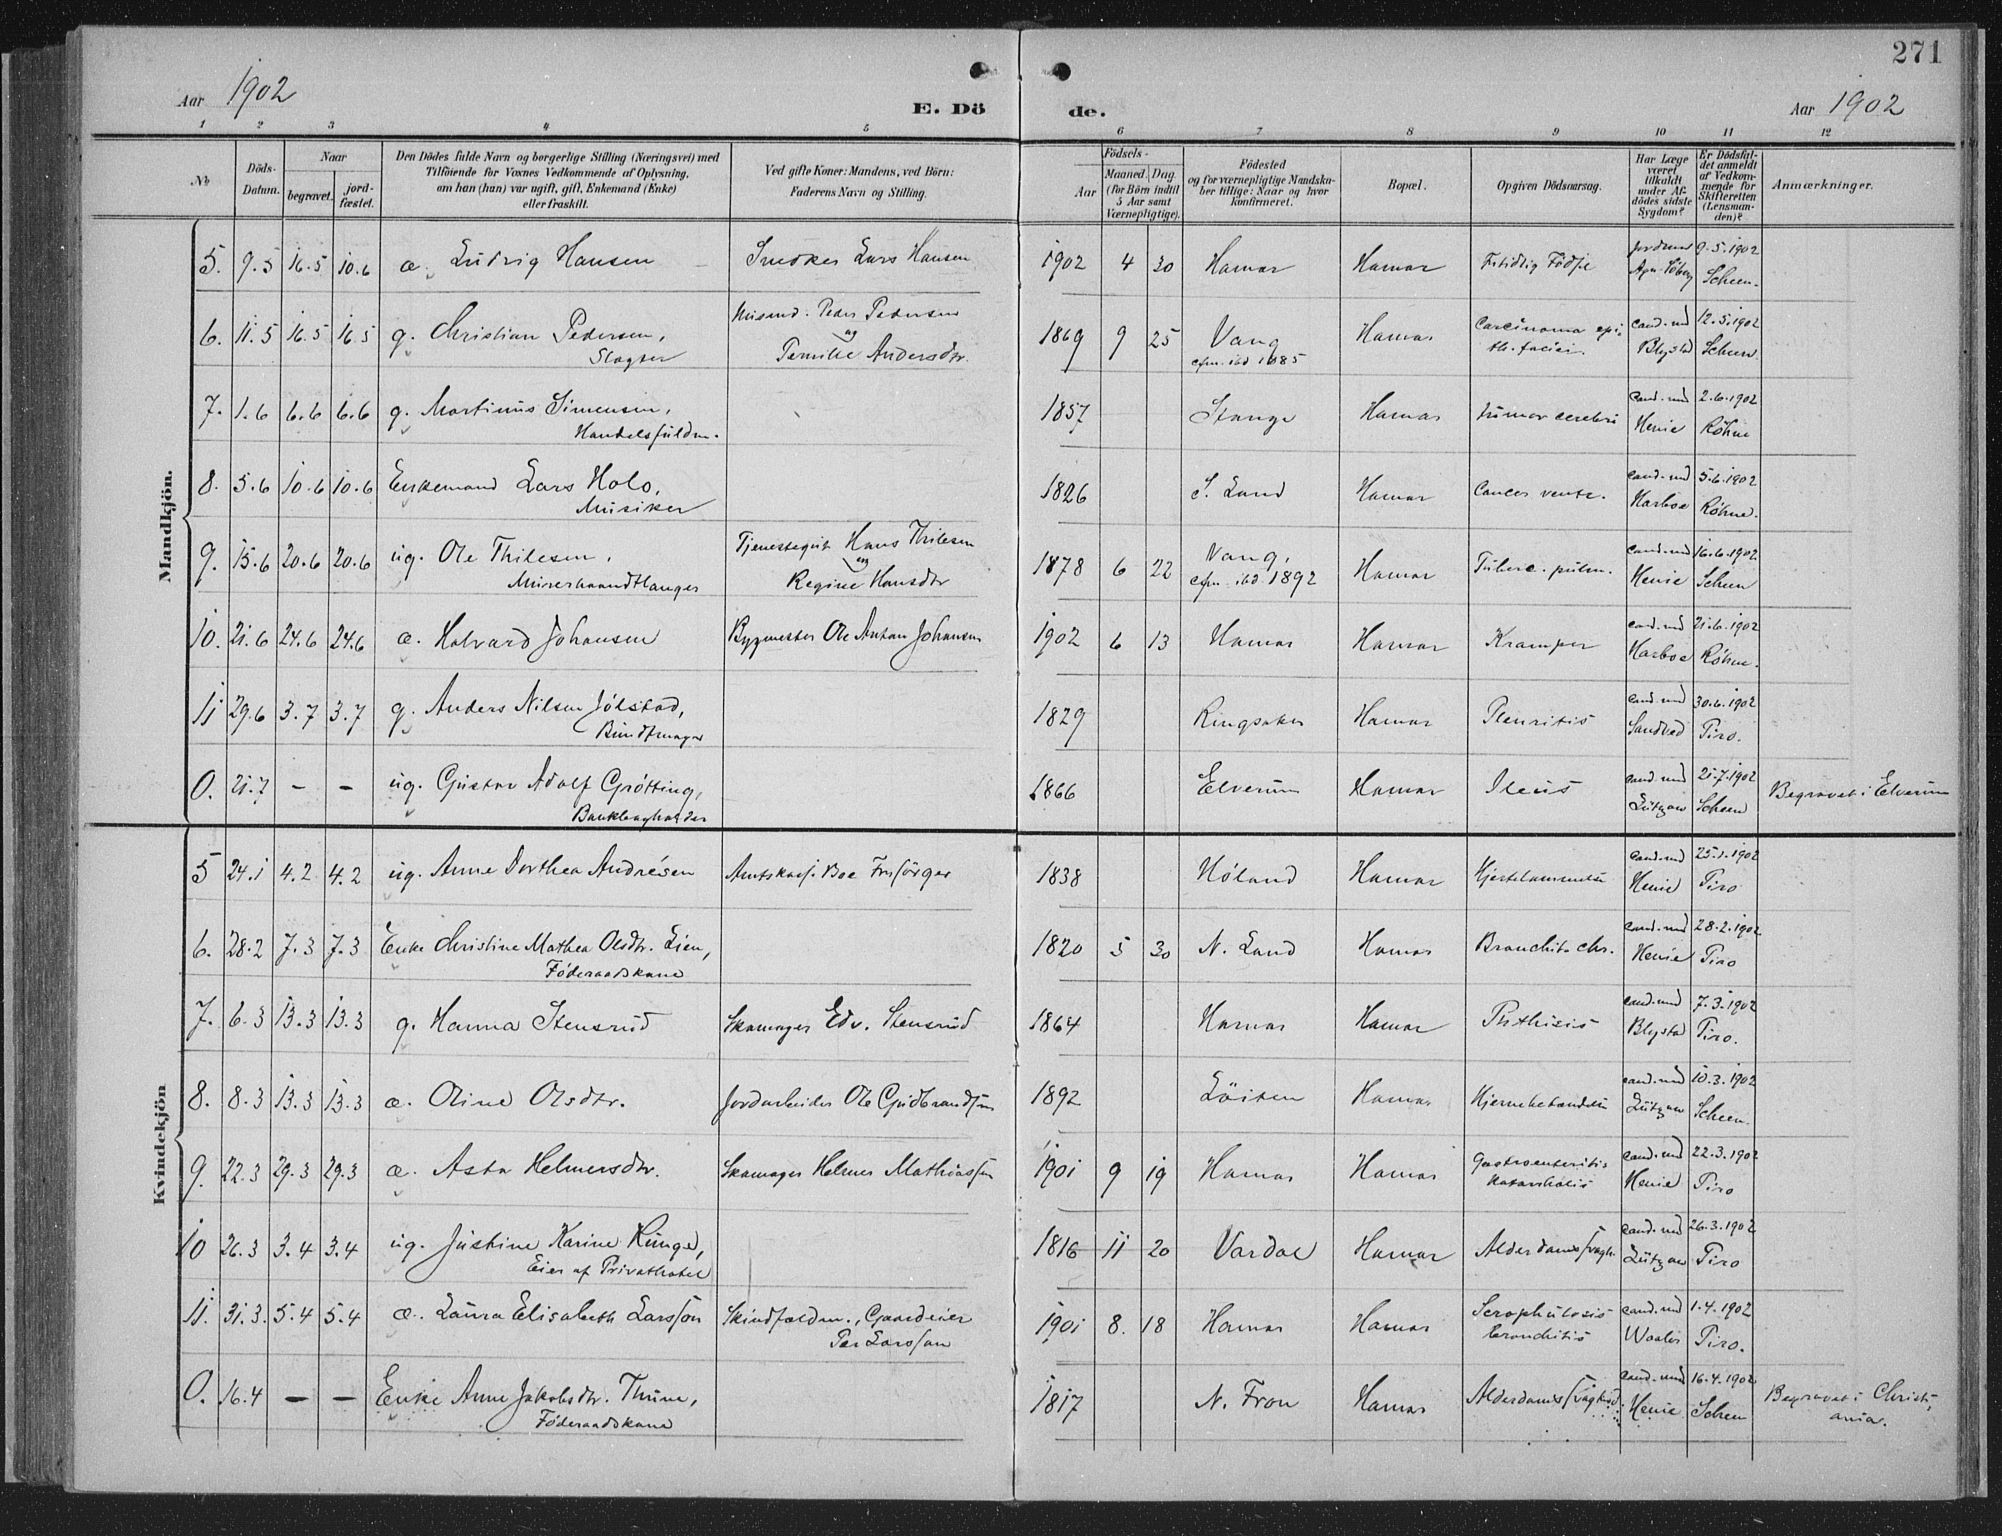 271
Aar 1902
E. Dö
de.
Aar 1902
1 2 3 4 5 6 7 8 9 10 11 12
No
Döds-
Datum.
Naar
begravet.
jord-
fæstet.
Den Dödes fulde Navn og borgerlige Stilling (Næringsvei) med
Tilföiende for Voxnes Vedkommende af Oplysning,
om han (hun) var ugift, gift, Enkemand (Enke)
eller fraskilt.
Ved gifte Koner: Mandens, ved Börn:
Faderens Navn og Stilling.
Födsels-
Aar
Maaned. Dag
(for Börn indtil
5 Aar samt
Værnepligtige).
Födested
og for værnepligtige Mandska-
ber tillige: Naar og hvor
konfirmeret.
Bopæl.
Opgiven Dödsaarsag.
Har Læge
været
tilkaldt
under Af-
dödes sidste
Sygdom?
Er Dödsfal-
det anmeldt
af Vedkom-
mende for
Skifteretten
(Lensman-
den)?
Anmærkninger.
Mandkjön.
5. 9.5 16.5 10.6 æ. Ludvig Hansen Smedker Lars Hansen 1902 4 30 Hamar Hamar Fortidlig Födsel Jordmor 9.5.1902
Scheen.
6. 11.5 16.5 16.5 g. Christian Pedersen, Peder Pedersen 1869 9 25 Vang Hamar Carcinoma epi- cand. med 12.5.1902
Slagter og Pernille Andersdtr. cfm. ibd 1885 th. faciei. Blystad Scheen.
7. 1.6 6.6 6.6 g. Martinus Simensen, 1857 Stange Hamar tumor cerebri cand. med 2.6.1902
Handelsfuldm. Henie Röhne
8. 5.6 10.6 10.6 Enkemand Lars Holo, 1826 S. Land Hamar Cancer ventr. cand. med 5.6.1902
Musiker Harboe Röhne.
9. 15.6 20.6 20.6 ug. Ole Thilesen, Tjenestegut Hans Thilesen 1878 6 22 Vang, Hamar Tuberc. pulm. cand. med 16.6.1902
Murerhaandtlanger og Regine Hansdtr cfm. ibd. 1892 Henie Scheen
10. 21.6 24.6 24.6 æ. Halvard Johansen Bygmester Ole Anton Johansen 1902 6 13 Hamar Hamar Kramper cand. med 21.6.1902
Harboe Röhne.
11 29.6 3.7 3.7 g. Anders Nilsen Jölstad, 1829 Ringsaker Hamar Pleuritis cand. med 30.6.1902
Bundtmager Sandved Tiro.
0. 21.7 – – ug. Gustav Adolf Grötting, 1866 Elverum Hamar Ileus cand. med 21.7.1902 Begravet i Elverum
Bankbogholder Lützow Scheen
Kvindekjön
5 24.1 4.2 4.2 ug. Anne Dorthea Andrésen Amtskasf. Boe Forsörger 1838 Höland Hamar Hjertelammelse cand. med 25.1.1902
Henie Tiro
6. 28.2 7.3 7.3 Enke Christine Mathea Olsdtr. Lien, 1820 5 30 N. Land Hamar Bronchit. chr. cand. med 28.2.1902
Föderaadskone Henie Tiro
7. 6.3 13.3 13.3 g. Hanna Stensrud Skomager Edv. Stensrud 1864 Hamar Hamar Phthisis cand. med 7.3.1902
Blystad Tiro.
8. 8.3 13.3 13.3 æ. Oline Olsdtr. Jordarbeider Ole Gudbrandsen 1892 Löiten Hamar Hjernebetændelse cand. med 10.3.1902
Lützow Scheen.
9. 22.3 29.3 29.3 æ. Asta Helmersdtr. Skomager Helmer Mathiassen 1901 9 19 Hamar Hamar Gastroenteritis cand. med 22.3.1902
katarrhalis Henie Tiro
10 26.3 3.4 3.4 ug. Justine Karine Runge, 1816 11 20 Vardal Hamar Alderdomssvagh. cand. med 26.3.1902
Eier af Privathotel Lützow Tiro
11. 31.3. 5.4 5.4 æ. Laura Elisabeth Larsson Skindfældm., Gaardeier 1901 8. 18 Hamar Hamar Scrophulosis cand. med 1.4.1902
Per Larsson bronchitis Waaler Tiro.
0. 16.4 – – Enke Anne Jakobsdtr. Thune, 1817 N. Fron Hamar Alderdomssvaghed cand. med 16.4.1902 Begravet i Christi-
Föderaadskone Henie Scheen ania.